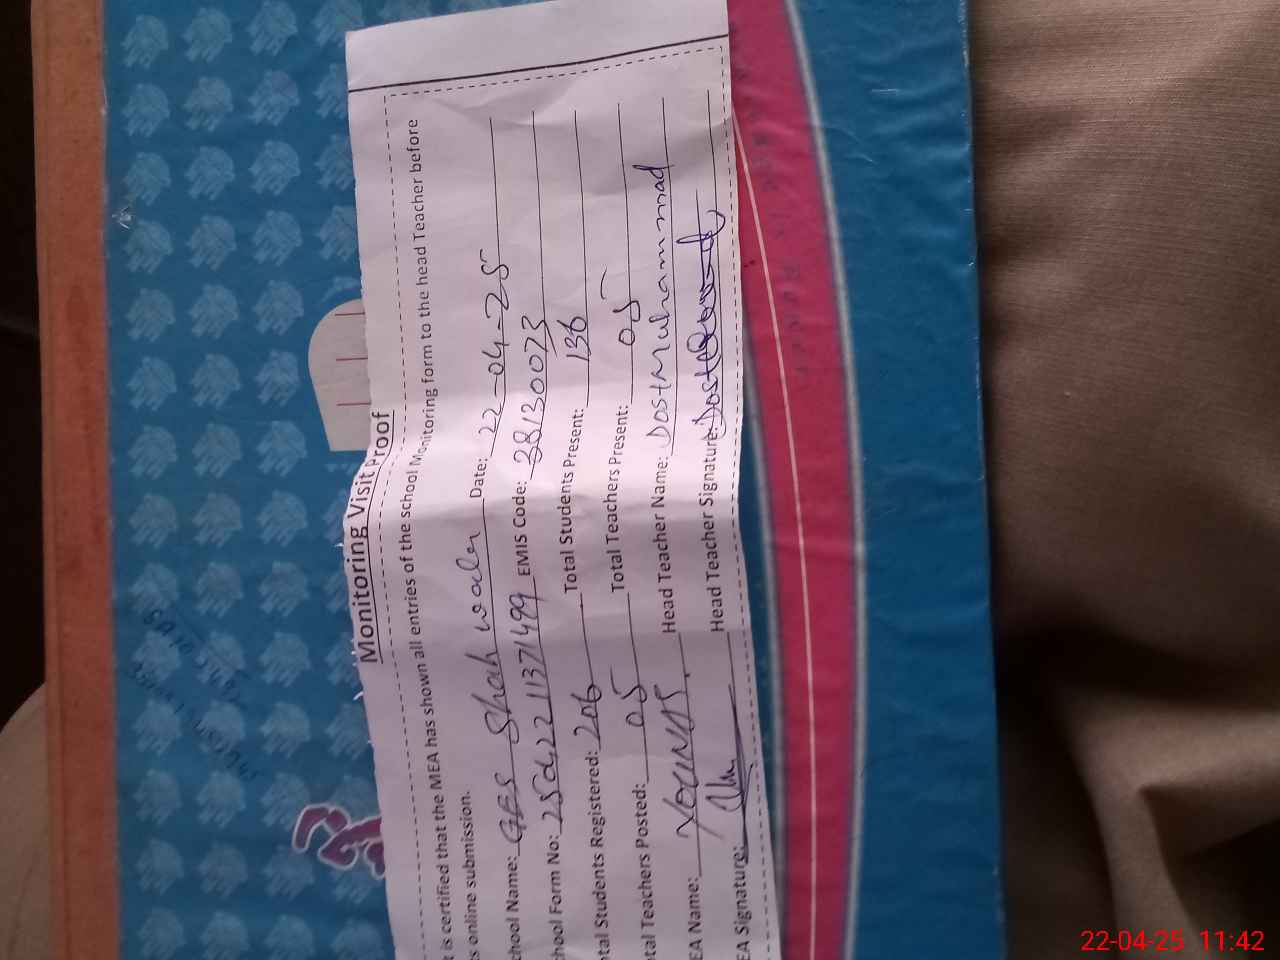 Monitoring Visit Proof
t is certified that the MEA has shown all entries of the school Monitoring form to the head Teacher before
s online submission.
chool Name: GBS Shah wali Date: 22-04-25
chool Form No: 250422113711499 EMIS Code: 38130073
tal Students Registered: 206 Total Students Present: 136
tal Teachers Posted: 05 Total Teachers Present: 05
EA Name: YOUNUS. Head Teacher Name: Dost Muhammad
EA Signature: Head Teacher Signature: Dost
22-04-25 11:42